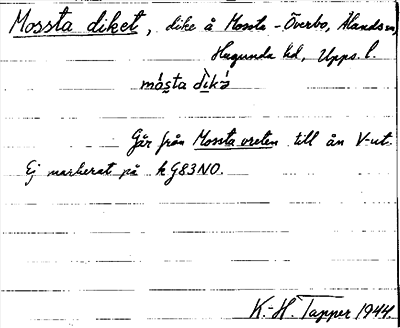 Mossta diket, dike å Mossta - Överbo, Ålands sn,
Hagunda hd, Upps. l.
mósta dìkə
Går från Mossta vreten till ån V-ut.
Ej markerat på k G83NO.
K.-H. Tapper 1944.